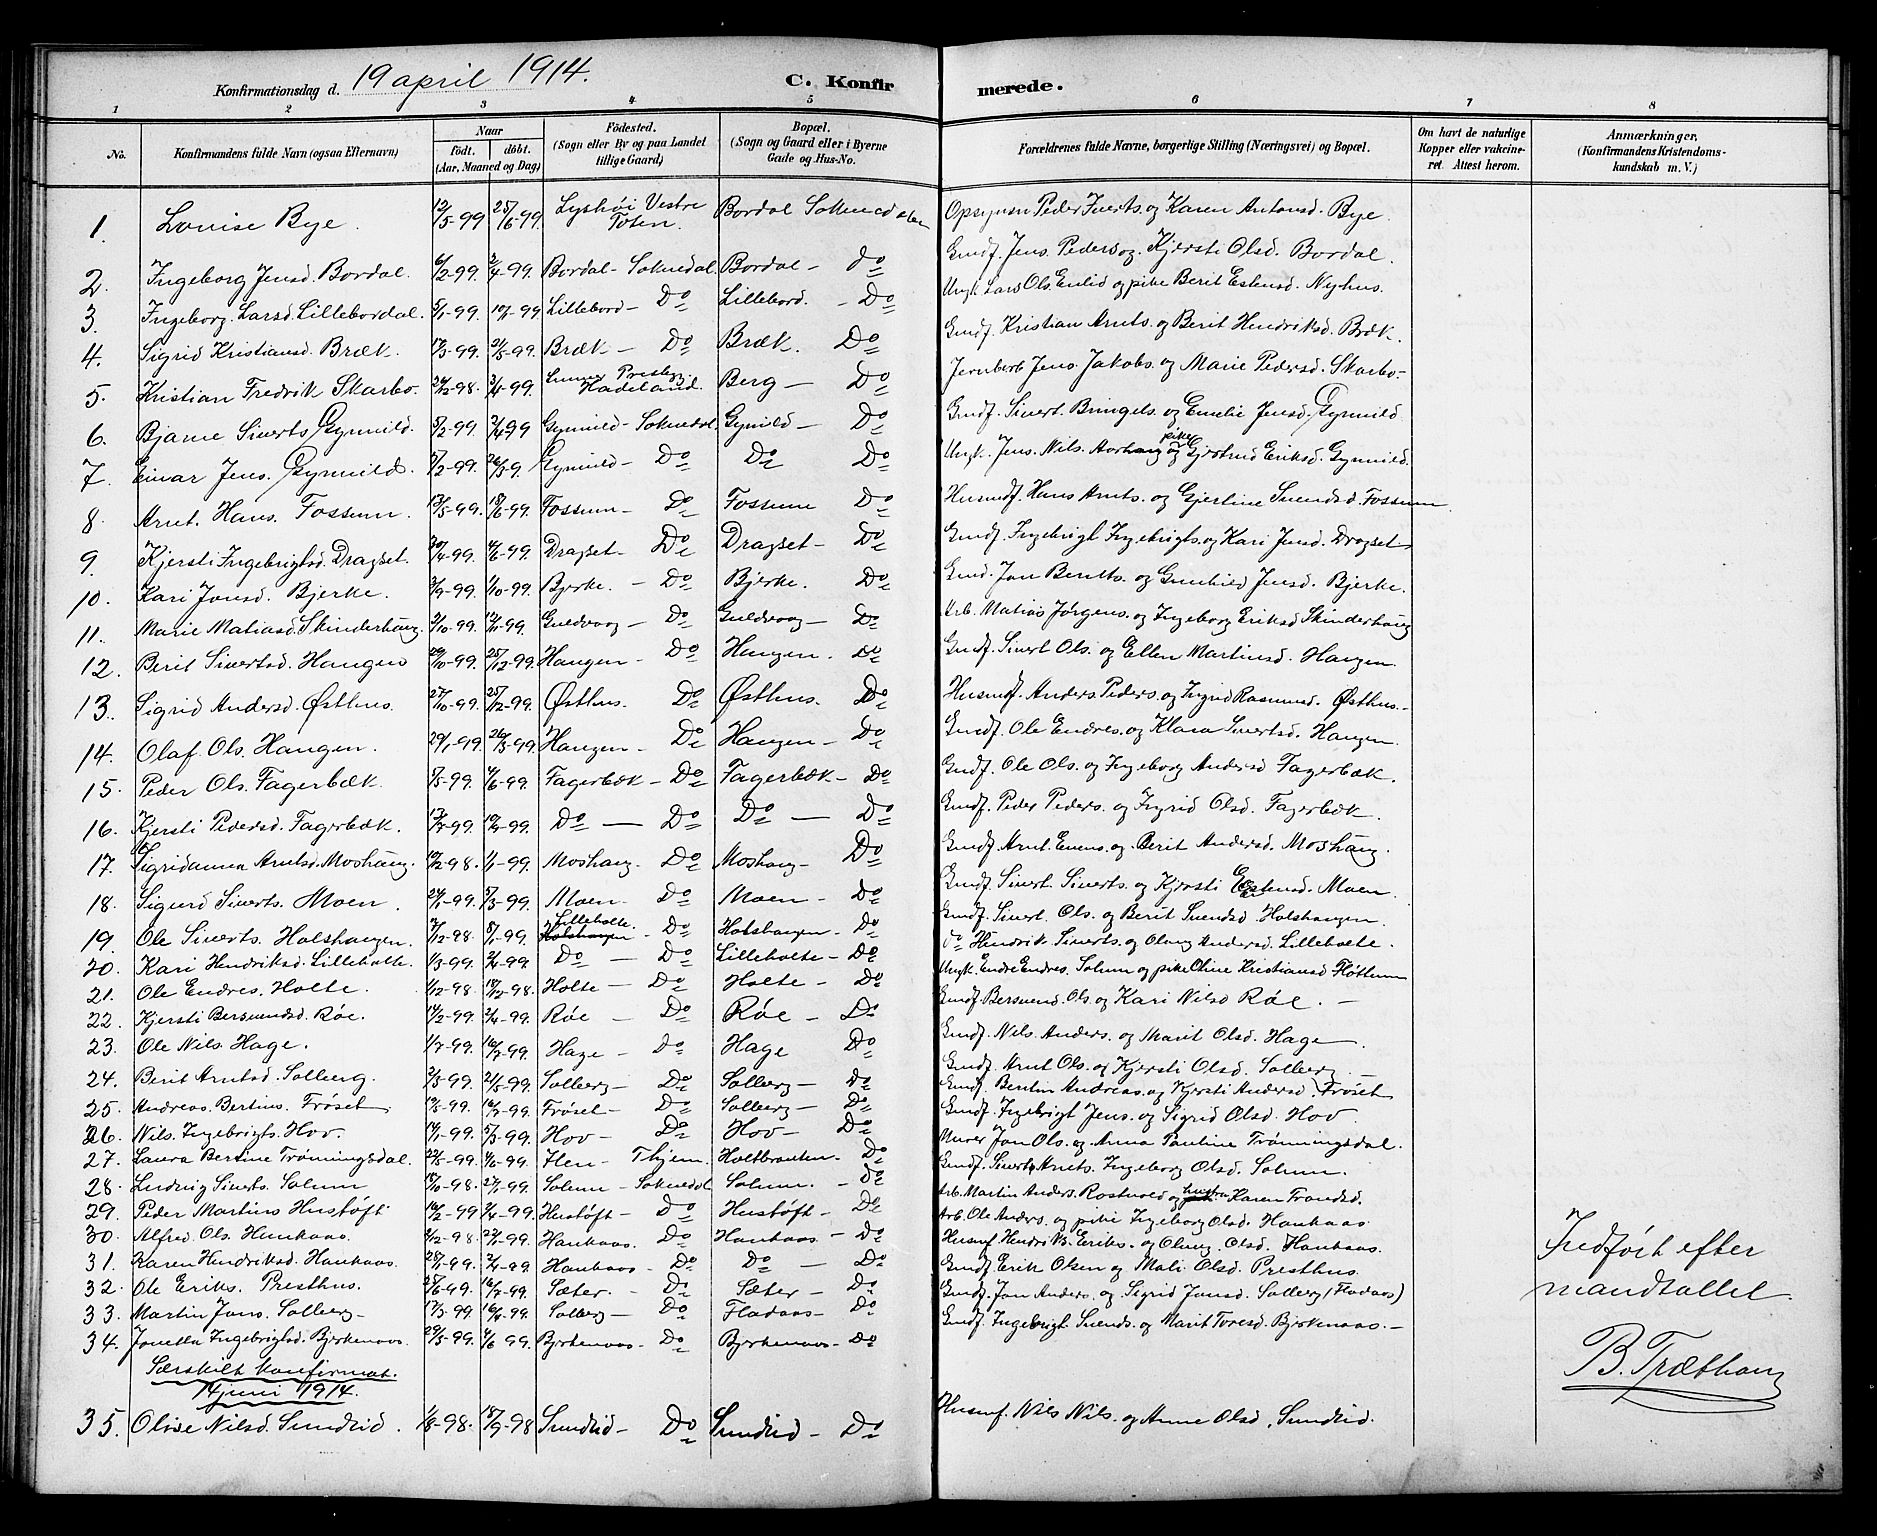 Konfirmationsdag d. 19 april 1914. C. Konfirmerede.
1 2 3 4 5 6 7 8
No. Konfirmandens fulde Navn (ogsaa Efternavn) Naar födt. döbt. (Aar, Maaned og Dag) Födested. (Sogn eller By og paa Landet tillige Gaard) Bopæl. (Sogn og Gaard eller i Byerne Gade og Hus-No. Forældrenes fulde Navne, borgerlige Stilling (Næringsvei) og Bopæl. Om havt de naturlige Kopper eller vakcineret. Attest herom. Anmærkninger. (Konfirmandens Kristendomskundskab m. V.)
1. Louise Bye. 12/5-99 25/6-99. Lyshöi Vestre Toten. Bordal Soknedalen Opsynsm Peder Iverts. og Karen Antonsd. Bye.
2. Ingeborg Jensd. Bordal. 6/2-99. 2/4-99. Bordal- Soknedal. Bordal- do Gmdf. Jens Peders og Kjersti Olsd. Bordal.
3. Ingeborg Larsd. Lillebordal. 5/1-99. Lillebord- Do Lillebord. - Do Ungk Lars Ols. Enlid og pike Berit Estensd. Nyhus.
4. Sigrid Kristiansd. Bræk. 17/3-99. 21/5-99. Bræk - Do Bræk. Do Gmdf. Kristian Arnts. og Berit Hendriksd. Bræk.
5. Kristian Fredrik Skarbo. Lunner Prestegj. Hadeland. Berg - Do Jernbarb Jens Jakobs. og Marie Pedersd. Skarbo-
6. Bjarne Siverts Gynnild. 5/2-99. 2/4-99 Gynnild- Soknedal. Gynild- Do Gmdf. Sivert Bringels. og Emelie Jensd. Gynnild
7. Einar Jens. Gynnild. Gynnild- Do Do Do Ungk. Jens. Nils. Aorhaug og pike Gjertrud Eriksd. Gynnild.
8. Arnt. Hans. Fossum. 13/5-99. 18/6-99. Fossum- Do Fossum Do Husmdf. Hans Arnts. og Gjertine Svendsd Fossum.
9. Kjersti Ingebrigtsd. Dragset. 30/4-99. 4/6-99. Dragset- Do Dragset- Do Gmdf. Ingebrigt Ingebrigts. og Kari Jensd. Dragset
10. Kari Jonsd. Bjerke. 3/9-99. 1/10-99. Bjerke. - Do Bjerke. Do Gmd. Jon Berntts. og Gunhild Jensd. Bjerke.
11. Marie Matiasd. Skinderhaug. Guldvaag- Do Guldvaag- Do Arb. Matias Jørgens. og Ingeborg Eriksd Skinderhaug
12. Berit Sivertsd. Haugen 29/10-99. 25/12-99. Haugen- Do Haugen. Do Gmdf. Sivert Ols. og Ellen Martinsd. Haugen.
13. Sigrid Andersd. Østhus. 27/10-99. 25/12-99. Østhus. Do Østhus. Do Husmdf. Anders. Peders. og Ingrid Rasmusd. Østhus.-
14. Olaf. Ols. Haugen. 29/1-99. 26/3-99. Haugen- Do Haugen- Do Gmdf. Ole Endres. og Klara Sivertsd. Haugen.
15. Peder Ols. Fagerbæk 7/5-99. 4/6-99. Fagerbæk- Do Fagerbæk- Do Gmdf. Ole Ols. og Ingeborg Andersd Fagerbæk.
16. Kjersti Pedersd. Fagerbæk. Do - Do Do - Do Gmdf. Peder Peders. og Ingrid Olsd. Fagerbæk.
17. Sigridanna Arntsd. Moshaug. 1/1-99. Moshaug- Do Moshaug- Do Gmdf. Arnt. Evens. og Berit Andersd. Moshaug.
18. Sigurd Siverts. Moen. 24/1-99. 5/3-99. Moen- Do Moen- Do Gmdf. Sivert. Siverts. og Kjersti Estensd. Moen
19. Ole Siverts. Holshaugen. 8/1-99. Lilleholte. Holshaugen- Do Holshaugen- Do Gmdf. Sivert. Ols. og Berit Svendsd Holshaugen.
20. Kari Hendriksd. Lilleholte. 1/3-99. 2/4-99. Do - Do Lilleholte- Do do Hendrik Siverts. og Olaug Andersd. Lilleholte.
21. Ole Endres. Holte. 1/12-98. 18/12-98. Holte- Do Holte- Do Ungk. Endre Endres. Solum og pike Oline Kristiansd Fløttum
22. Kjersti Bersvendsd. Røe. 2/4-99. Røe - Do Røe - Do Gmdf. Bersvend. Ols. og Kari Nilsd Røe. -
23. Ole Nils. Hage. 1/7-99. 16/7-99. Hage- Do Hage Do Gmdf. Nils. Anders. og Marit Olsd. Hage.
24. Berit Arntsd. Solberg. 2/5-99. 21/5-99. Solberg- Do Solberg- Do Gmdf. Arnt Ols. og Kjersti Olsd. Solberg.
25. Andreas. Bertins. Frøset. 16/7-99. Frøset- Do Solberg- Do Gmdf. Bertin Andreas. og Kjersti Andersd. Frøset
26. Nils. Ingebrigts. Hov. 5/3-99. Hov- Do Hov- Do Gmdf. Ingebrigt Jens. og Sigrid Olsd. Hov.
27. Laura Bertine Trønningsdal. 22/5-99. 4/6-99. Hen- Thjem. Holtbrauten- Do Murer Jon Ols. og Anna Pauline Trønningsdal.
28. Ludvig Siverts. Solum 18/10-98. Solum - Soknedal Solum. - Do Gmdf. Sivert Arnts. Ingeborg Olsd. Solum.
29. Peder Martins Hustøft 16/2-99 2/4-99. Hustøft- Do Hustøft- Do Arb. Martin Anders. Rostvold og hustru Karen Frandsd.
30. Alfred Ols. Haukaas. Haukaas. Do Haukaas- Do Arb. Ole Anders. og pike Ingeborg Olsd. Haukaas
31. Karen Hendriksd. Haukaas. 28/1-99. 2/4-99. Haukaas- Do Do - Do Husmf. Hendrik. Eriks. og Olaug. Olsd. Haukaas.
32. Ole Eriks. Presthus. 16/7-99. Sæter. - Do Sæter- Do Gmdf. Erik Olsen og Mali Olsd. Presthus.
33. Martin Jons. Solberg- 17/3-99. 16/4-99. Solberg- Do Fladaas- Do Gmdf. Jon Anders. og Sigrid Jonsd. Solberg (Fladaas)
34. Jonetta Ingebrigtsd. Bjerkenaas. 29/5-99. 4/6 99. Bjerkenaas- Do Bjerkenaas- Do Gmdf. Ingebrigt Svends. og Marit Toresd. Bjerkenaas.-
Særskilt konfirmat.
14 juni 1914.
35. Olise Nilsd. Sundlid. 1/8-98. 18/9-98 Sundlid- Do Sundlid- Do Husmf. Nils Nils. og Anne Olsd. Sundlid.
Indført efter
mandtallet.
B. Træthaug